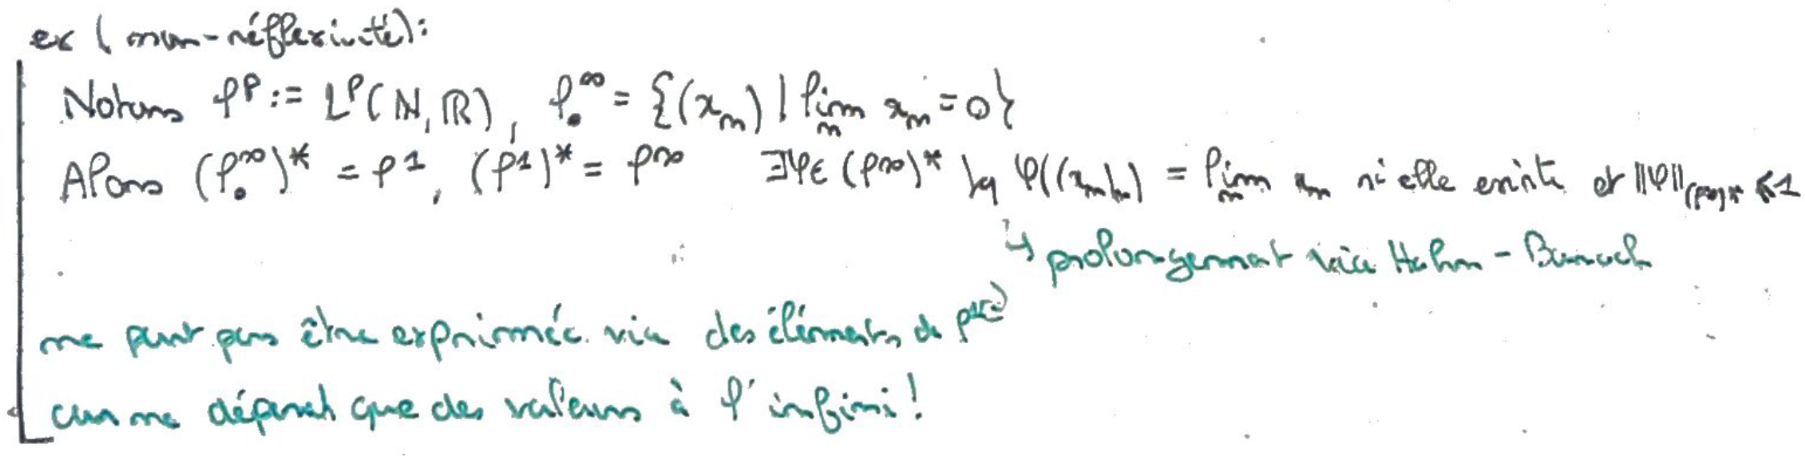 ex (non-réflexivité):
Notons ℓ^p := L^p(ℕ, ℝ), ℓ_0^∞ = {(x_n) | lim_n x_n = 0}
Alors (ℓ_0^∞)* = ℓ^1, (ℓ^1)* = ℓ^∞ ∃φ∈(ℓ^∞)* tq φ((x_n)_n) = lim_n x_n si elle existe et ||φ||_(ℓ^∞)* ≤ 1
↳ prolongement via Hahn-Banach
ne peut pas être exprimée via des éléments de ℓ^1
car ne dépend que des valeurs à l'infini!